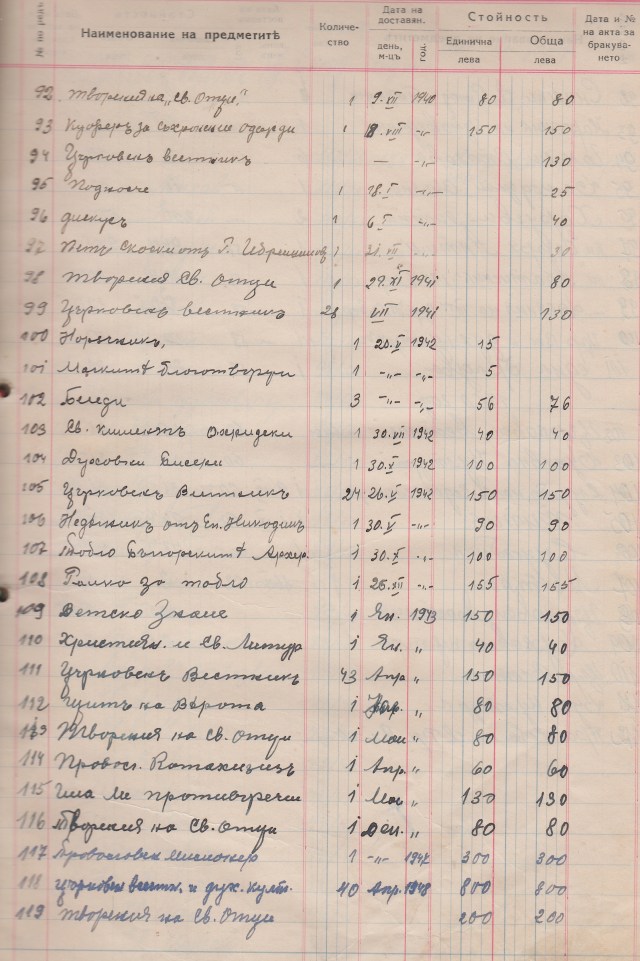 № по редъ Наименование на предметитѣ Количество Дата на доставян. день, м-цъ год. Стойность Единична лева Обща лева Дата и № на акта за бракуването
92 Творения на „Св. Отци“ 1 9.VII 1940 80 80
93 Куферъ за съхранение одежди 1 8.VIII -„- 150 150
94 Църковенъ вестникъ — -„- 130
95 Подносче 1 18.I -„- 25
96 дискусъ 1 6.I -„- 40
97 отъ 1 VII -„-
98 Творения Св. Отци 1 29.XI 1941 80
99 Църковенъ вестникъ 26 VII 1941 130
100 Наръчникъ, 1 20.V 1942 15
101 1 -„- -„- 5
102 Беседи 3 -„- -„- 56 76
103 Св. Климентъ Охридски 1 30.VII 1942 40 40
104 Духовни Бисери 1 30.V 1942 100 100
105 Църковенъ Вестникъ 24 26.V 1942 150 150
106 Недѣлникъ отъ Еп. Никодимъ 1 30.V -„- 90 90
107 Табло Българскитѣ Архиер. 1 30.X -„- 100 100
108 Рамка за табло 1 26.XII -„- 155 155
109 Детско Знаме 1 Ян. 1943 150 150
110 Християн. и Св. Литур 1 Ян. „ 40 40
111 Църковенъ Вестникъ 43 Апр. „ 150 150
112 Щитъ на Вѣрата 1 „ 80 80
113 Творения на Св. Отци 1 Май „ 80 80
114 Правосл. Катахизисъ 1 Апр. „ 60 60
115 Има ли противоречие 1 Май „ 130 130
116 Творения на Св. Отци 1 Дек. „ 80 80
117 Православен Мисионер 1 -„- 1947 300 300
118 Църковен вестн. и дух. култ. 40 Апр. 1948 800 800
119 Творения на Св. Отци 200 200